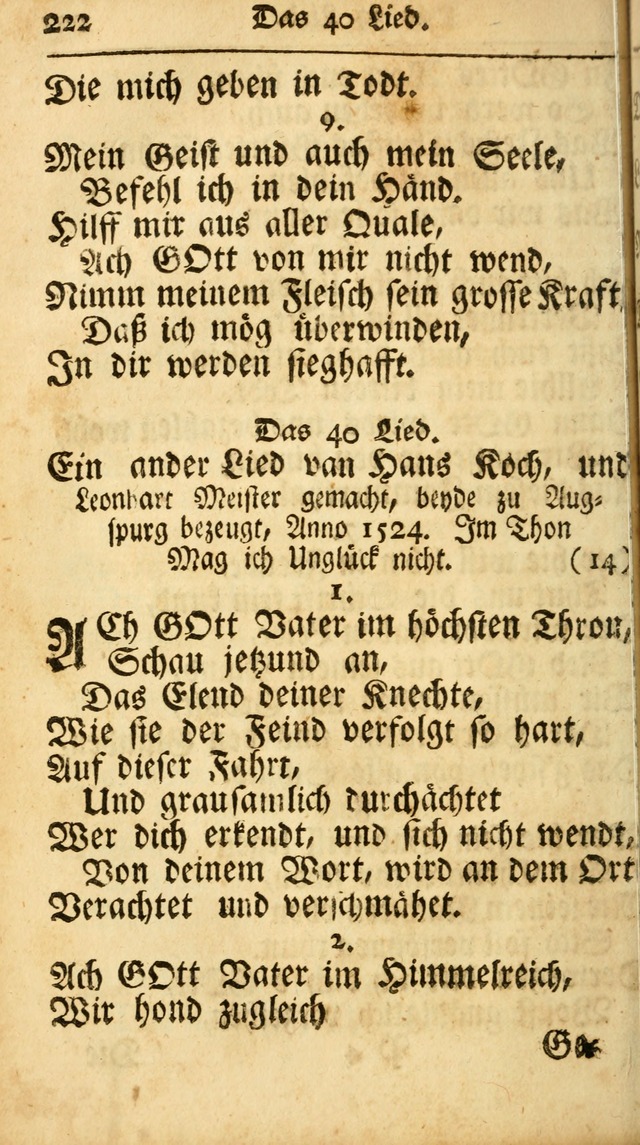 222 Das 40 Lied.
Die mich geben in Todt.
9.
Mein Geist und auch mein Seele,
Befehl ich in dein Händ.
Hilff mir aus aller Quale,
Ach GOtt von mir nicht wend,
Nimm meinem Fleisch sein grosse Kraft,
Daß ich mög überwinden,
In dir werden sieghafft.
Das 40 Lied.
Ein ander Lied van Hans Koch, und
Leonhart Meister gemacht, beyde zu Aug-
spurg bezeugt, Anno 1524. Im Thon
Mag ich Unglück nicht. (14)
1.
ACh GOtt Vater im höchsten Thron,
Schau jetzund an,
Das Elend deiner Knechte,
Wie sie der Feind verfolgt so hart,
Auf dieser Fahrt,
Und grausamlich durchächtet
Wer dich erkendt, und sich nicht wendt,
Von deinem Wort, wird an dem Ort
Verachtet und verschmähet.
2.
Ach GOtt Vater im Himmelreich,
Wir hond zugleich